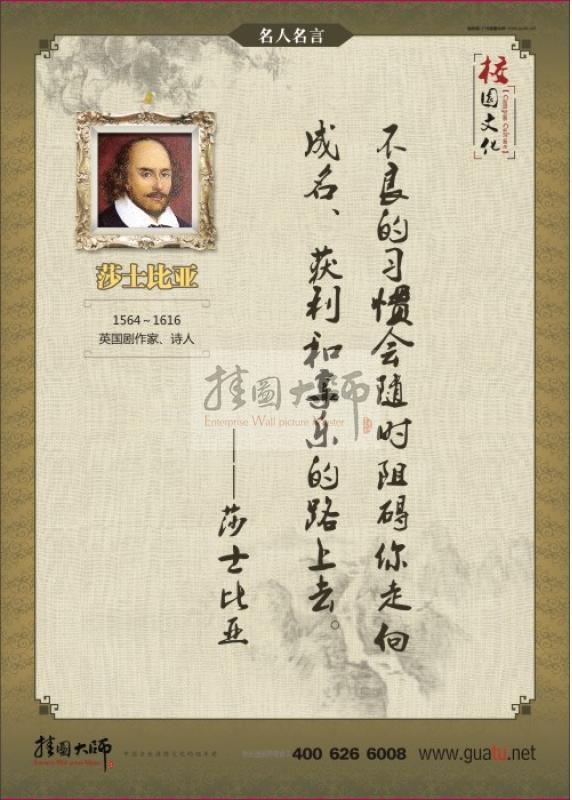 名人名言
校园文化
Campus Culture
莎士比亚
1564～1616
英国剧作家、诗人
不良的习惯会随时阻碍你走向
成名、获利和享乐的路上去。
——莎士比亚
挂圖大师
Enterprise Wall picture Master
挂圖大师
Enterprise Wall picture Master
400 626 6008
www.guatu.net